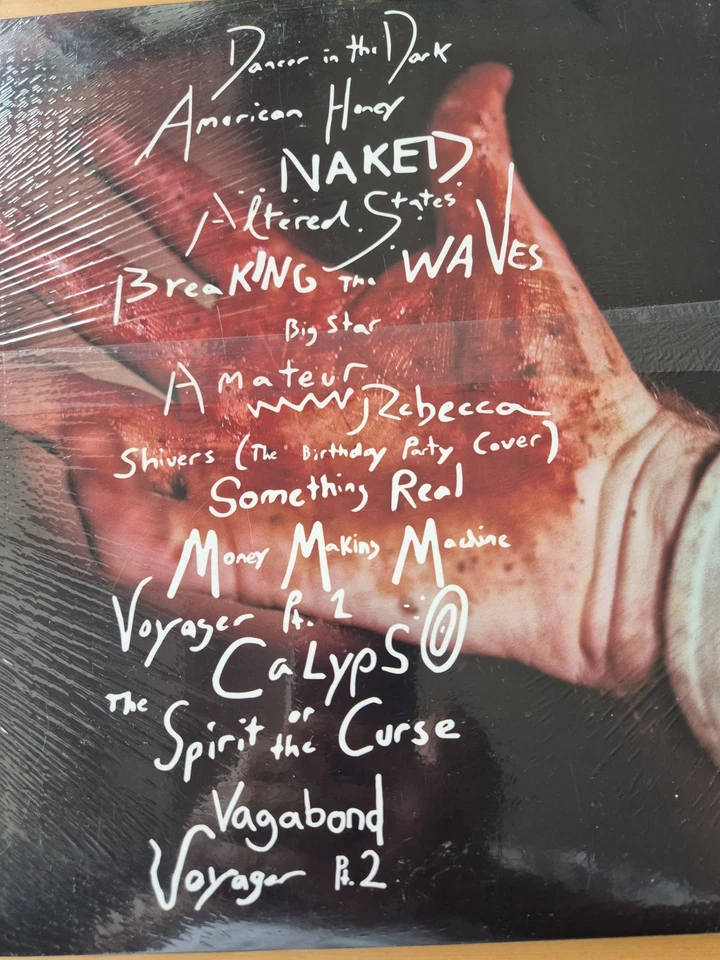 Dancer in the Dark
American Honey
NAKED
Altered States
BreaKING The WAVEs
Big Star
Amateur
Rebecca
Shivers (The Birthday Party Cover)
Something Real
Money Making Machine
Voyager Pt. 2
CaLypSO
The Spirit or the Curse
Vagabond
Voyager Pt. 2